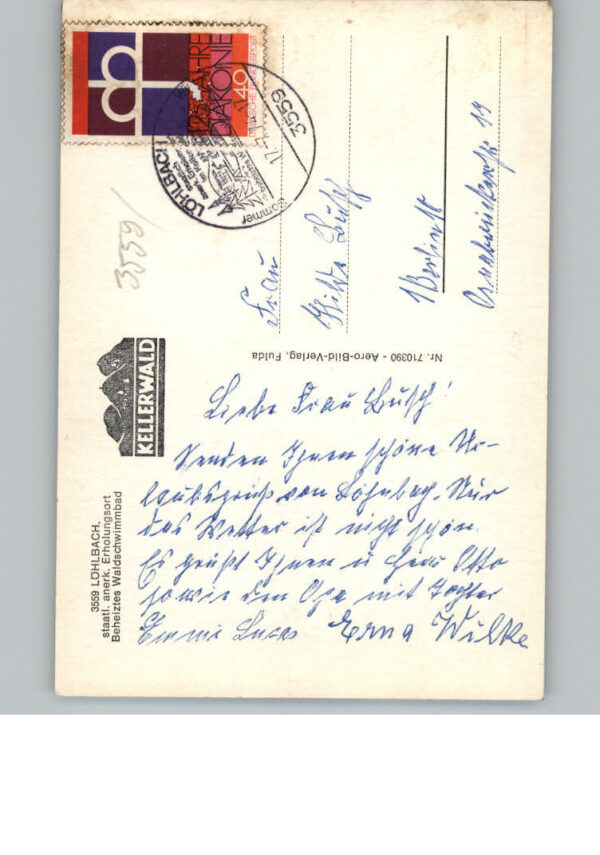 3559 LÖHLBACH,
staatl. anerk. Erholungsort
Beheiztes Waldschwimmbad
KELLERWALD
Nr. 710390 - Aero-Bild-Verlag, Fulda
125 JAHRE
DIAKONIE
40
DEUTSCHE BUNDESPOST
3559
LÖHLBACH
Sommer
3559/
Frau
Hilde Busch
1 Berlin
19
Liebe Frau Busch!
Senden Ihnen schöne Ur-
laubsgrüß von Löhlbach. Nur
das Wetter ist nicht schön.
Es grüßt Ihnen u Herr Otto
sowie den Opa mit Tochter
Emmi Lucas Erna Wilke